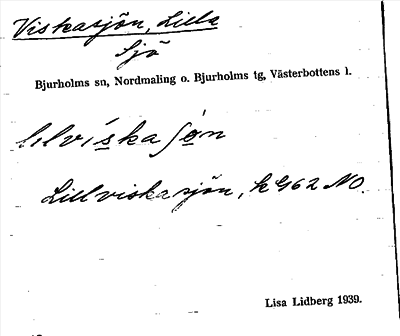 Viskasjön, Lilla
Sjö
Bjurholms sn, Nordmaling o. Bjurholms tg, Västerbottens l.
lilvískasjön
Lillviskasjön, k 962 NO.
Lisa Lidberg 1939.